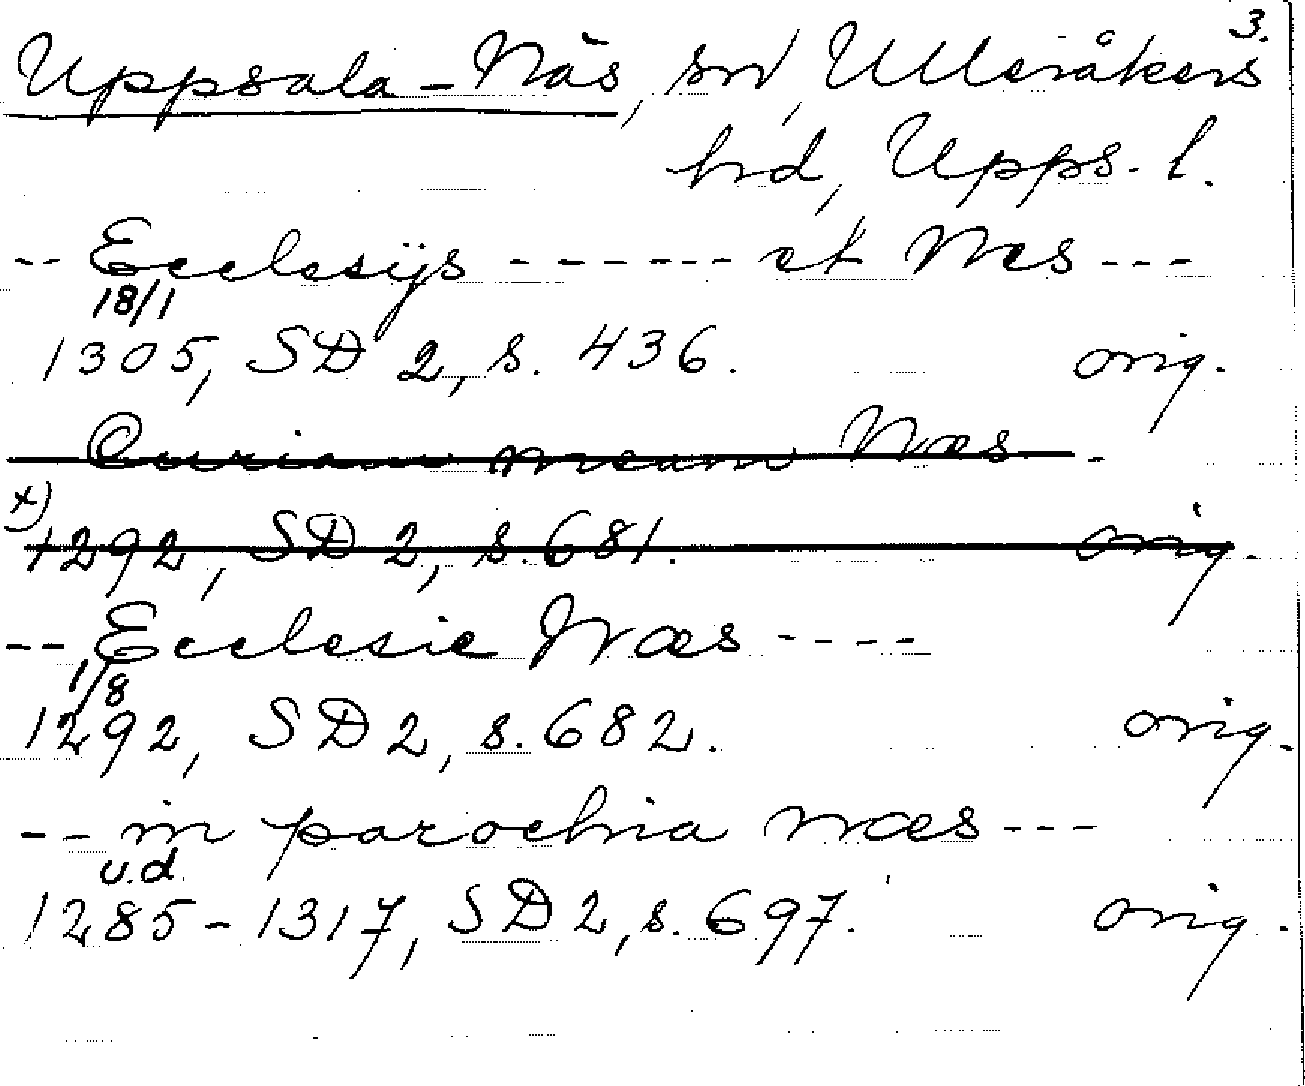 3.
Uppsala-Näs, sn, Ulleråkers
hrd, Upps. l.
-- Ecclesijs ------ et Næs ---
18/1
1305, SD 2, s. 436. orig.
Curiam meam Næs -
x)
1292, SD 2, s. 681. orig.
-- Ecclesie Næs ----
1/8
1292, SD 2, s. 682. orig.
-- in parochia næs ---
u.d.
1285-1317, SD 2, s. 697. orig.